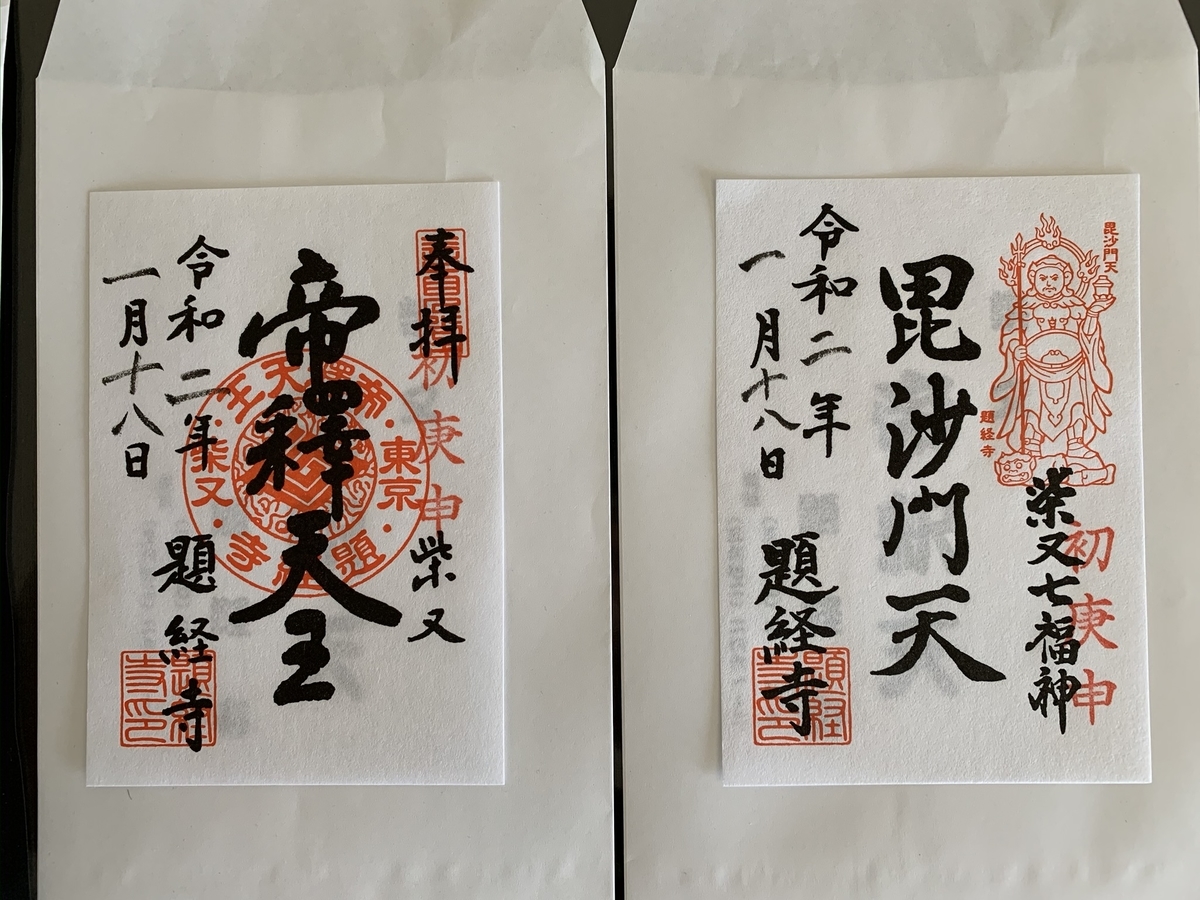 奉拝
初庚申
柴又
帝釋天王
東京
柴又
題経寺
帝釋天王
令和二年
一月十八日
題経寺
題経寺印
毘沙門天
題経寺
柴又七福神
初庚申
毘沙門天
令和二年
一月十八日
題経寺
題経寺印